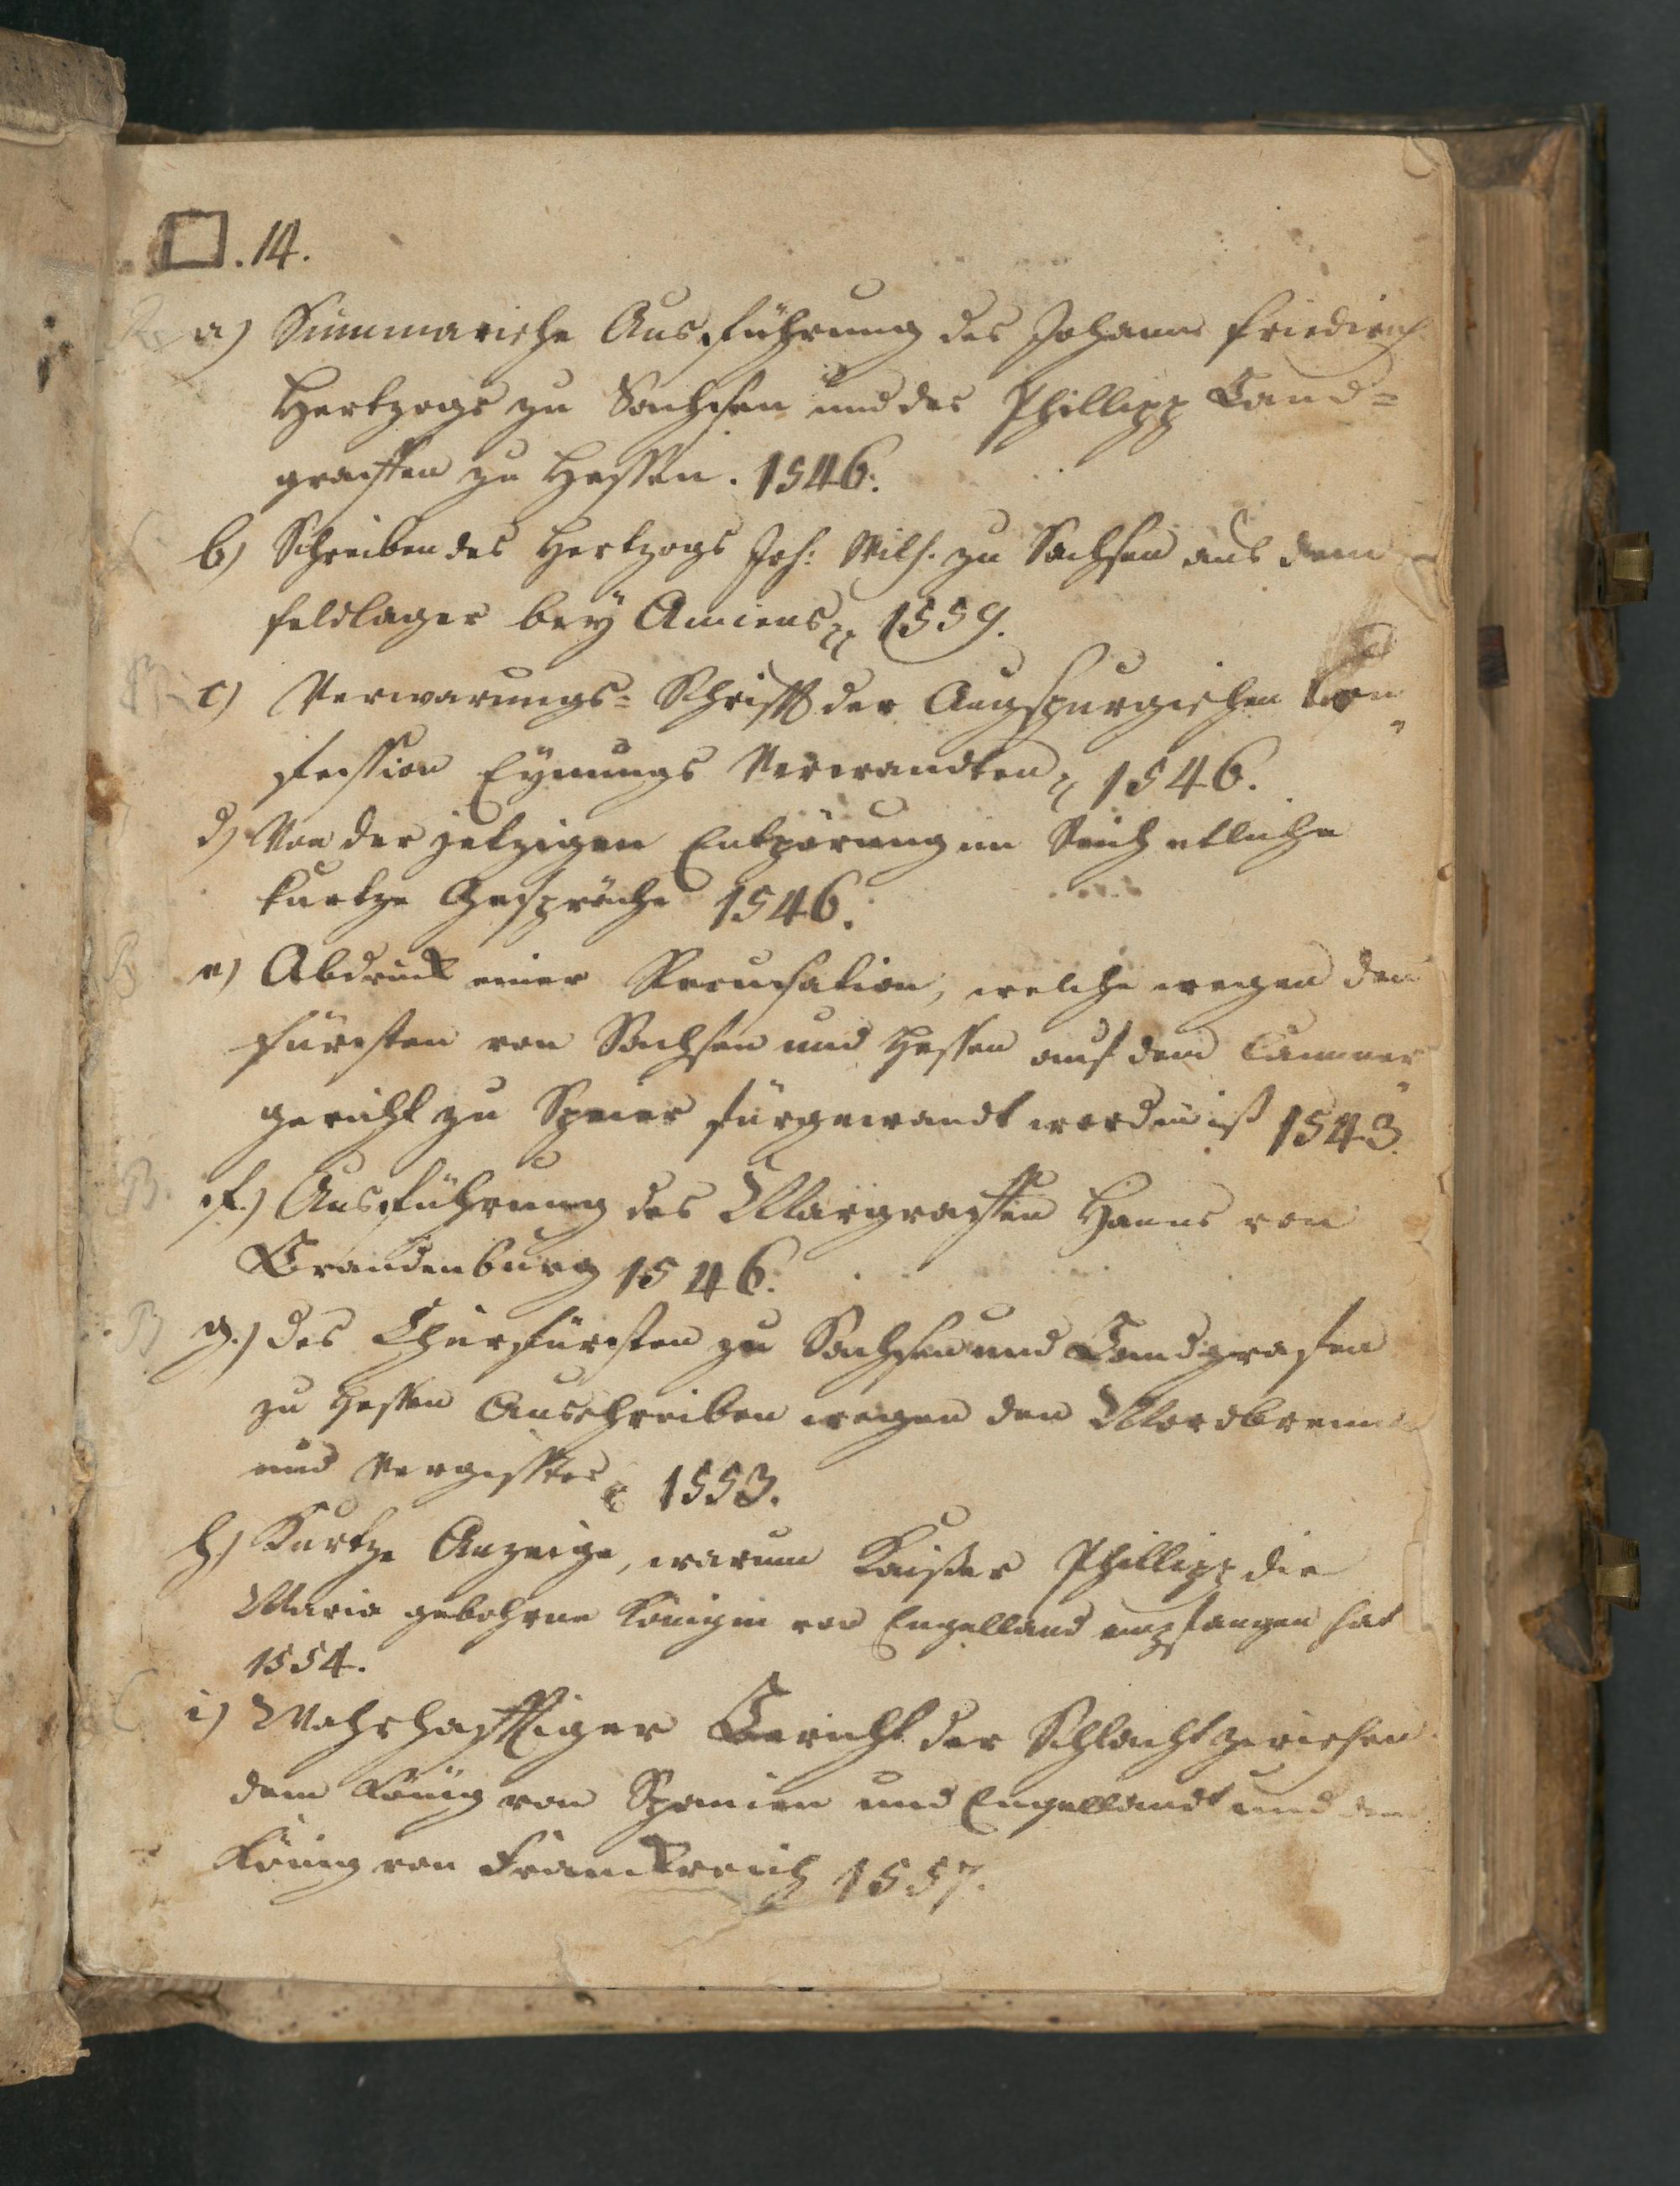 □. 14.
a) Summarische Ausführung des Johann Friedrich
Hertzogs zu Sachsen und des Phillipp Land=
graffen zu Hessen. 1546.
b) Schreiben des Hertzogs Joh: Wilh. zu Sachsen aus dem
Feldlager bey Amiens 1559.
c) Verwarungs= Schrifft der Augspurgischen Con
fession Eynungs Verwandten 1546.
d) Von der jetzigen Entpörung im Reich etliche
kurtze Gespräche 1546.
e) Abdruck einer Recusation, welche wegen den
Fürsten von Sachsen und Hessen auf dem Cammer
gericht zu Speier fürgewandt worden ist 1543.
f.) Ausführung des Margraffen Hanns von
Brandenburg 1546.
g.) des Churfürsten zu Sachsen und Landgrafen
zu Hessen Ausschreiben wegen den Mordbrenner
und Vergiffter 1553.
h) Kurtze Anzeige, warum Kaiser Phillipp die
Maria gebohrne Königin von Engelland empfangen hat
1554.
i) Wahrhafftiger Bericht der Schlacht zwischen
dem König von Spanien und Engellandt und dem
König von Franckreich 1557.